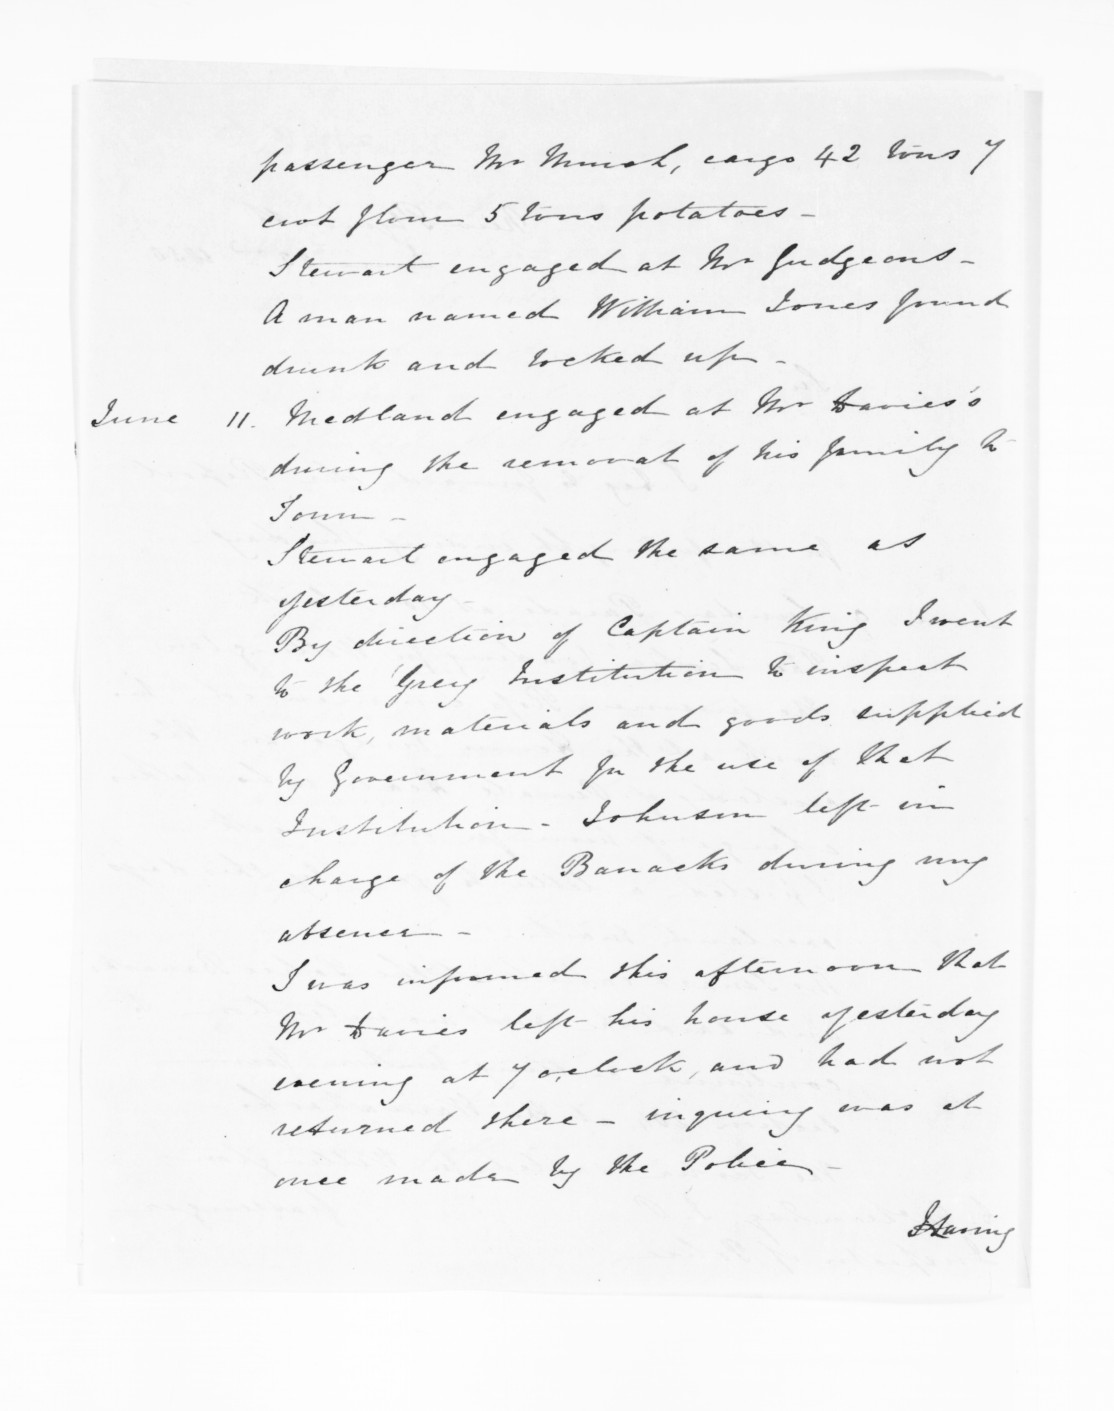 passenger Mr Mmsh, cargo 42 tons 7
cwt flour 5 tons potatoes -
Stewart engaged at Mr Gudgeons -
A man named William Jones found
drunk and locked up -
June 11. Medland engaged at Mr Davies's
during the removal of his family to
Town -
Stewart engaged the same as
yesterday -
By direction of Captain King I went
to the Grey Institution to inspect
work, materials and goods supplied
by Government for the use of that
Institution - Johnson left in
charge of the Barracks during my
absence -
I was informed this afternoon that
Mr Davies left his house yesterday
evening at 7 o'clock, and had not
returned there - inquiry was at
once made by the Police -
Having